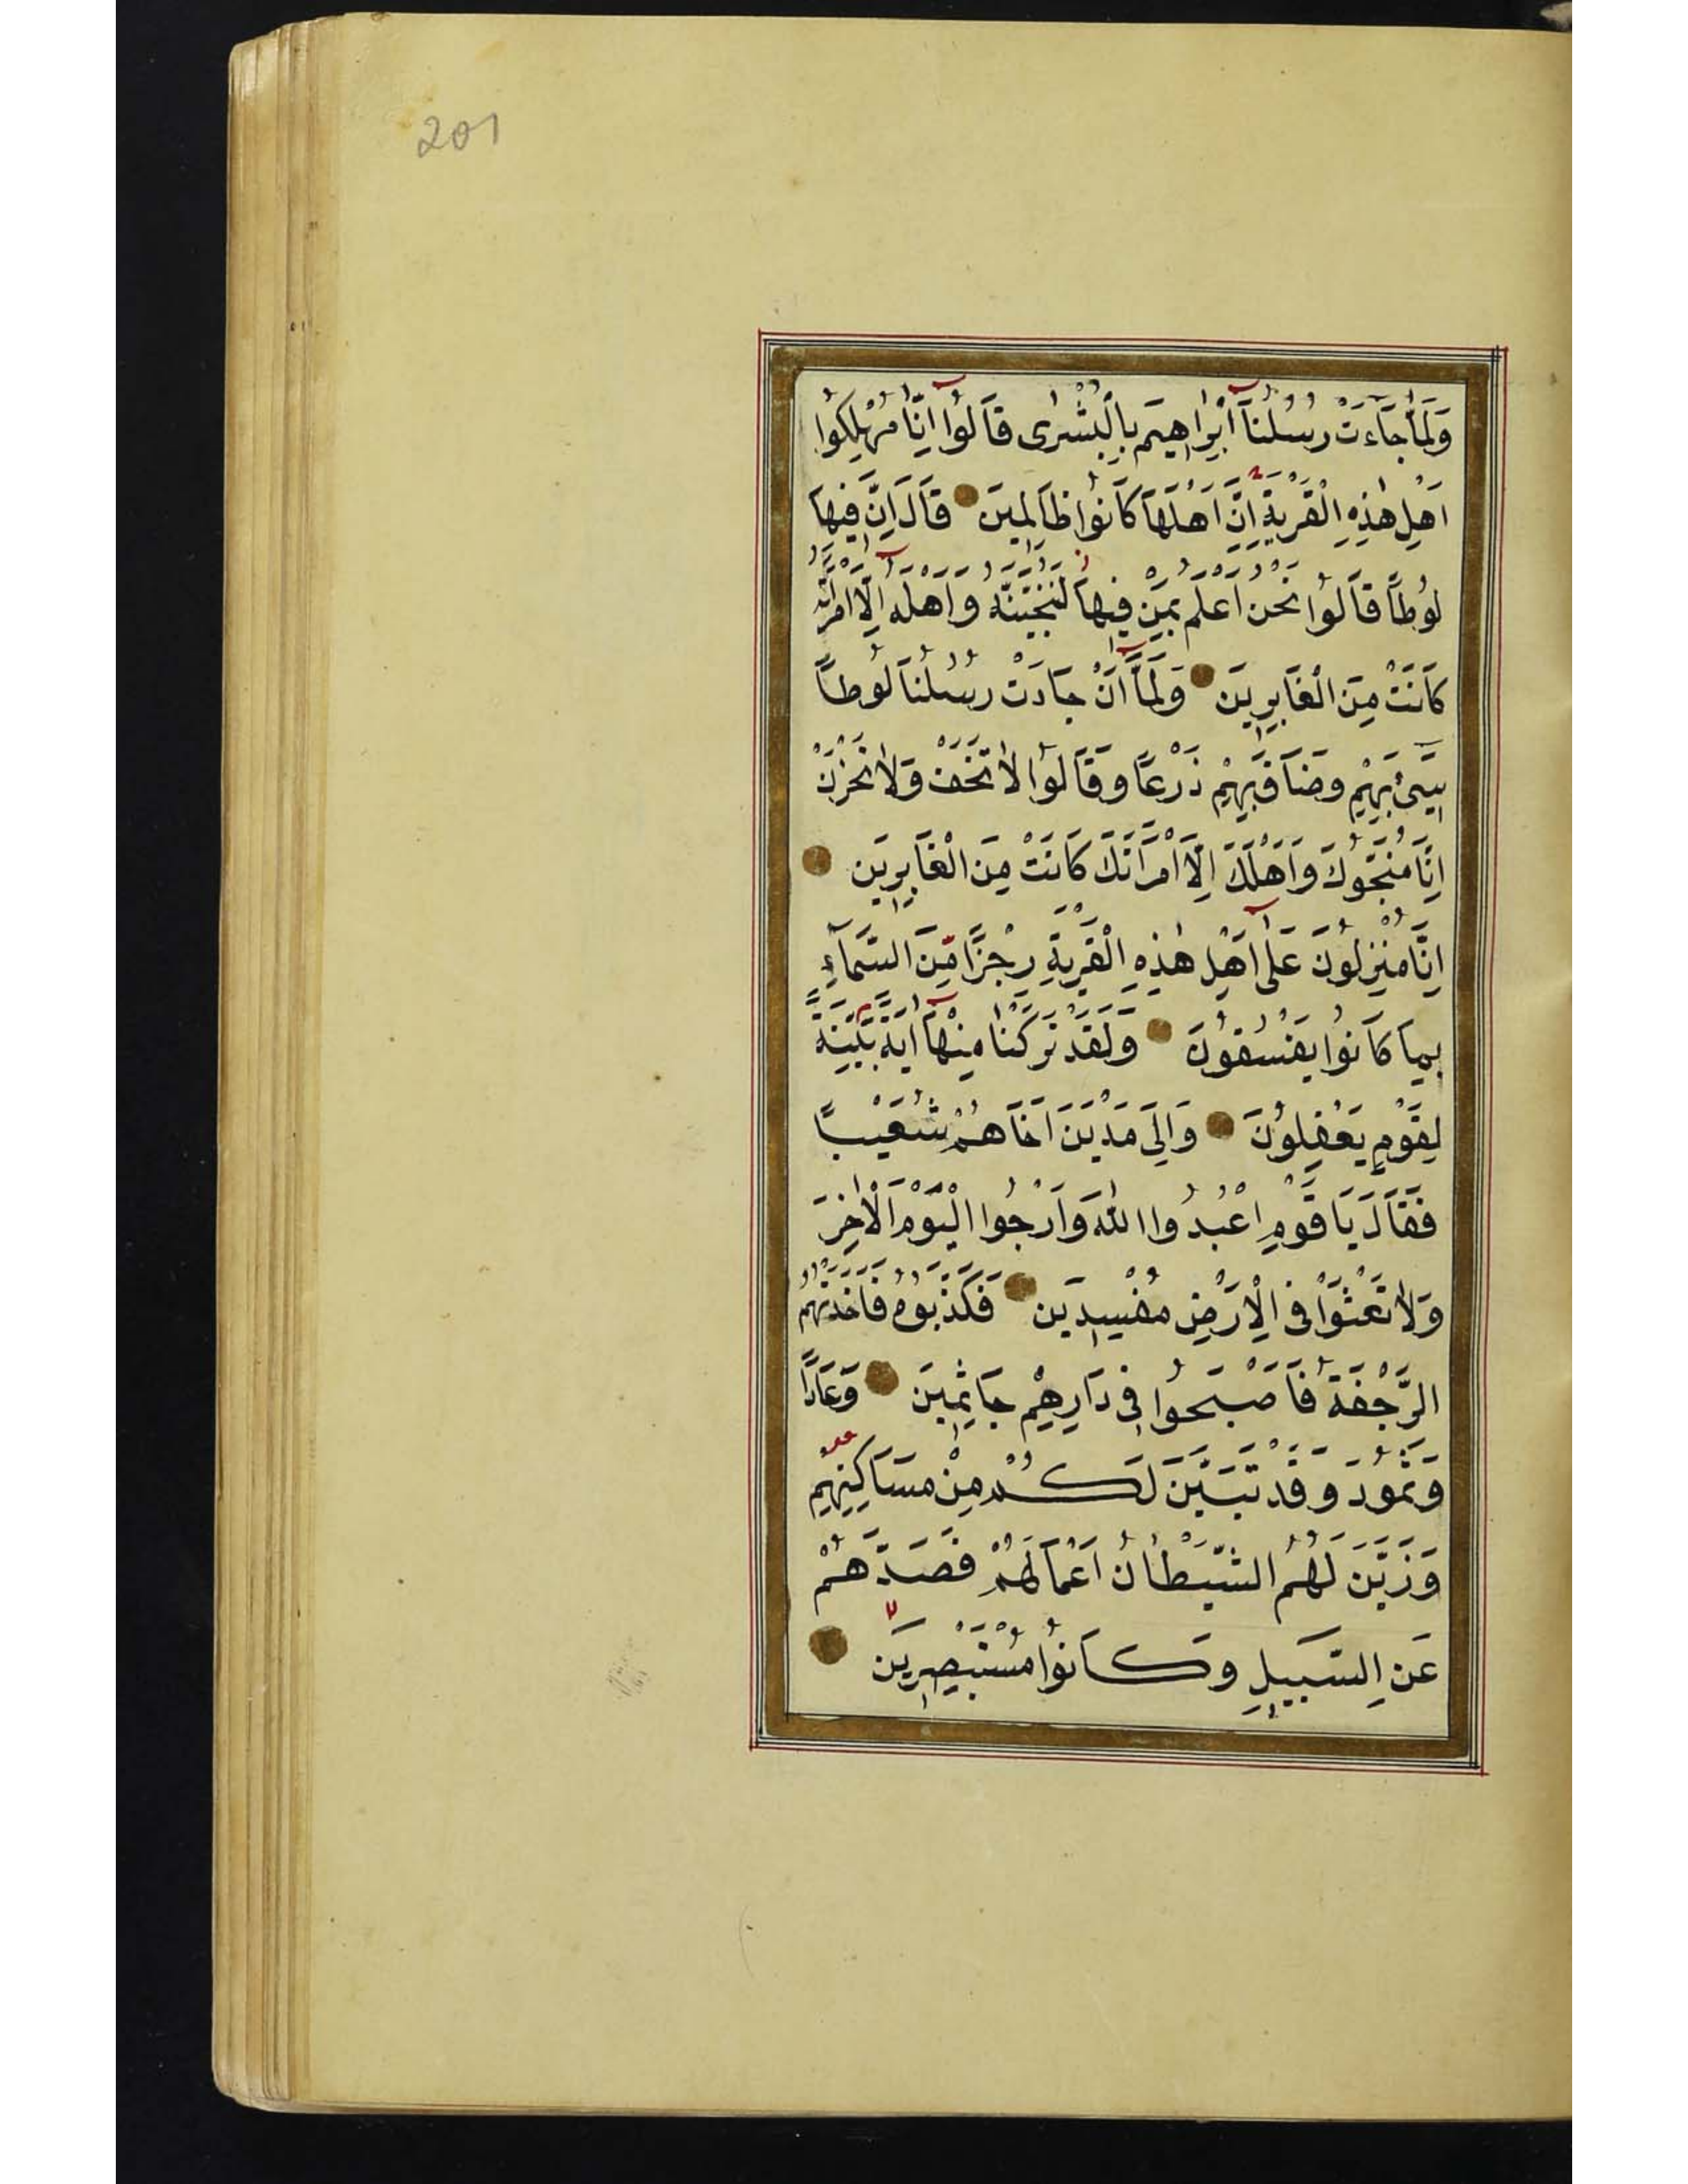 201
وَلَمَّا جَاءَتْ رُسُلُنَا اِبْرٰاهِيمَ بِالْبُشْرٰى قَالُوا اِنَّا مُهْلِكُوا
اَهْلِ هٰذِهِ الْقَرْيَةِ اِنَّ اَهْلَهَا كَانُوا ظَالِمِينَ قَالَ اِنَّ فِيهَا
لُوطًا قَالُوا نَحْنُ اَعْلَمُ بِمَنْ فِيهَا لَنُنَجِّيَنَّهُ وَاَهْلَهُ اِلَّا امْرَاَتَهُ
كَانَتْ مِنَ الْغَابِرِينَ وَلَمَّا اَنْ جَاءَتْ رُسُلُنَا لُوطًا
سِيئَ بِهِمْ وَضَاقَ بِهِمْ ذَرْعًا وَقَالُوا لَا تَخَفْ وَلَا تَحْزَنْ
اِنَّا مُنَجُّوكَ وَاَهْلَكَ اِلَّا امْرَاَتَكَ كَانَتْ مِنَ الْغَابِرِينَ
اِنَّا مُنْزِلُونَ عَلٰى اَهْلِ هٰذِهِ الْقَرْيَةِ رِجْزًا مِنَ السَّمَاءِ
بِمَا كَانُوا يَفْسُقُونَ وَلَقَدْ تَرَكْنَا مِنْهَا اٰيَةً بَيِّنَةً
لِقَوْمٍ يَعْقِلُونَ وَاِلٰى مَدْيَنَ اَخَاهُمْ شُعَيْبًا
فَقَالَ يَا قَوْمِ اعْبُدُوا اللّٰهَ وَارْجُوا الْيَوْمَ الْاٰخِرَ
وَلَا تَعْثَوْا فِي الْاَرْضِ مُفْسِدِينَ فَكَذَّبُوهُ فَاَخَذَتْهُمُ
الرَّجْفَةُ فَاَصْبَحُوا فِي دَارِهِمْ جَاثِمِينَ وَعَادًا
وَثَمُودَ وَقَدْ تَبَيَّنَ لَكُمْ مِنْ مَسَاكِنِهِمْ
وَزَيَّنَ لَهُمُ الشَّيْطَانُ اَعْمَالَهُمْ فَصَدَّهُمْ
عَنِ السَّبِيلِ وَكَانُوا مُسْتَبْصِرِينَ